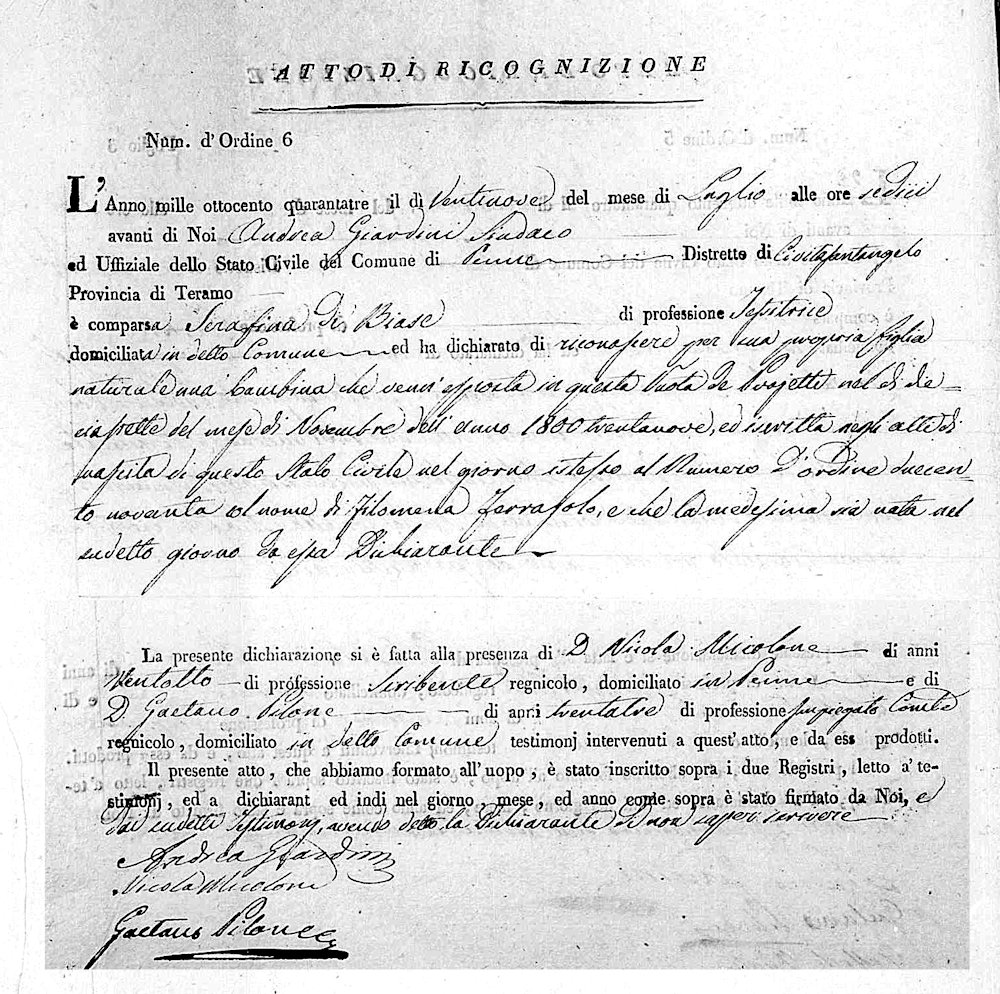 ATTO DI RICOGNIZIONE
Num. d'Ordine 6
L'Anno mille ottocento quarantatre il dì Ventinove del mese di Luglio alle ore sedici
avanti di Noi Andrea Giardini Sindaco
ed Uffiziale dello Stato Civile del Comune di Penne Distretto di Civitasantangelo
Provincia di Teramo
è comparsa Serafina Di Biase di professione Tessitrice
domiciliata in detto Comune ed ha dichiarato di riconoscere per sua propria figlia
naturale una bambina che venn'esposta in questa Ruota de Projetti nel dì die=
ciassette del mese di Novembre dell'anno 1800trentanove, ed iscritta negli atti di
nascita di questo Stato Civile nel giorno istesso al Numero D'ordine duecen=
to novanta col nome di Filomena Ferrasolo, e che la medesima sia nata nel
sudetto giorno da essa Dichiarante
La presente dichiarazione si è fatta alla presenza di D. Nicola Micolone di anni
Ventotto di professione Scribente regnicolo, domiciliato in Penne e di
D. Gaetano Pilone di anni trentatre di professione impiegato Comle
regnicolo, domiciliato in detto Comune testimonj intervenuti a quest'atto, e da ess prodotti.
Il presente atto, che abbiamo formato all'uopo, è stato inscritto sopra i due Registri, letto a' te-
stimonj, ed a dichiarant ed indi nel giorno, mese, ed anno come sopra è stato firmato da Noi, e
dai sudetti Testimonj, avendo detto la Dichiarante di non saper scrivere
Andrea Giardini
Nicola Micolone
Gaetano Pilone